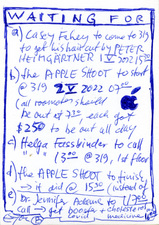 WAITING FOR
a) Casey Fehey to come to 319
to get his haircut by PETER
HEIMGARTNER 1 V 2022 15:00
b) the APPLE SHOOT to start
@ 319 2 V 2022 07:00
all roommates should
be out of 7:00 each get
$250 to be out all day
c) Helga Fessbinder to call
13:00 @ 319, 1st floor
d) the APPLE SHOOT to finish,
→ it did @ 15:00 (instead of
e) Dr. Jennifer Adams to
call → get booster + cholesterol
covid medicine